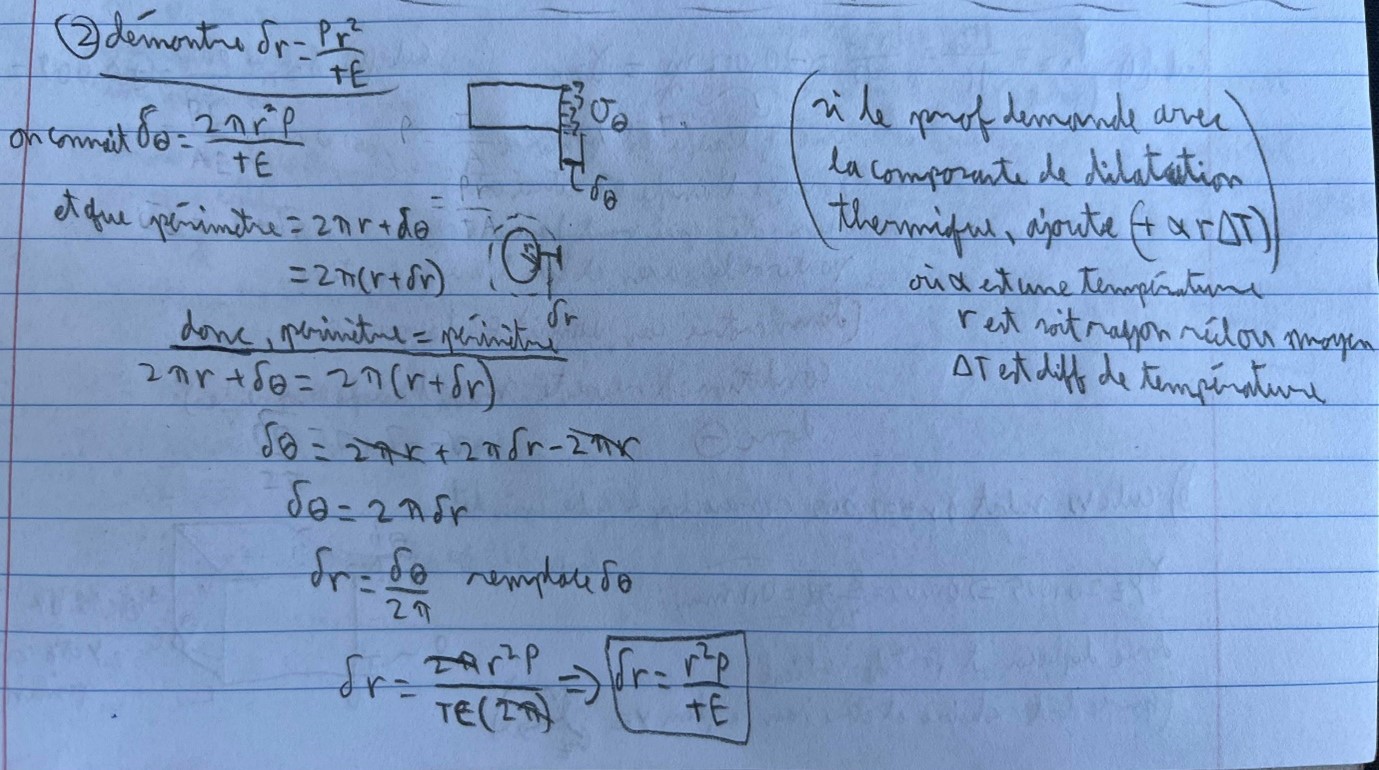 ② démontre δr = Pr²/tE
on connait δθ = 2πr²P/tE
σθ
δθ
et que périmètre = 2πr + δθ
= 2π(r + δr)
δr
donc, périmètre = périmètre
2πr + δθ = 2π(r + δr)
δθ = 2πr + 2πδr - 2πr
δθ = 2πδr
δr = δθ/2π remplace δθ
δr = 2πr²P/tE(2π) ⇒ δr = r²P/tE
(si le prof demande avec
la composante de dilatation
thermique, ajoute (+ α r ΔT))
où α est une température
r est soit rayon réel ou moyen
ΔT est diff de température